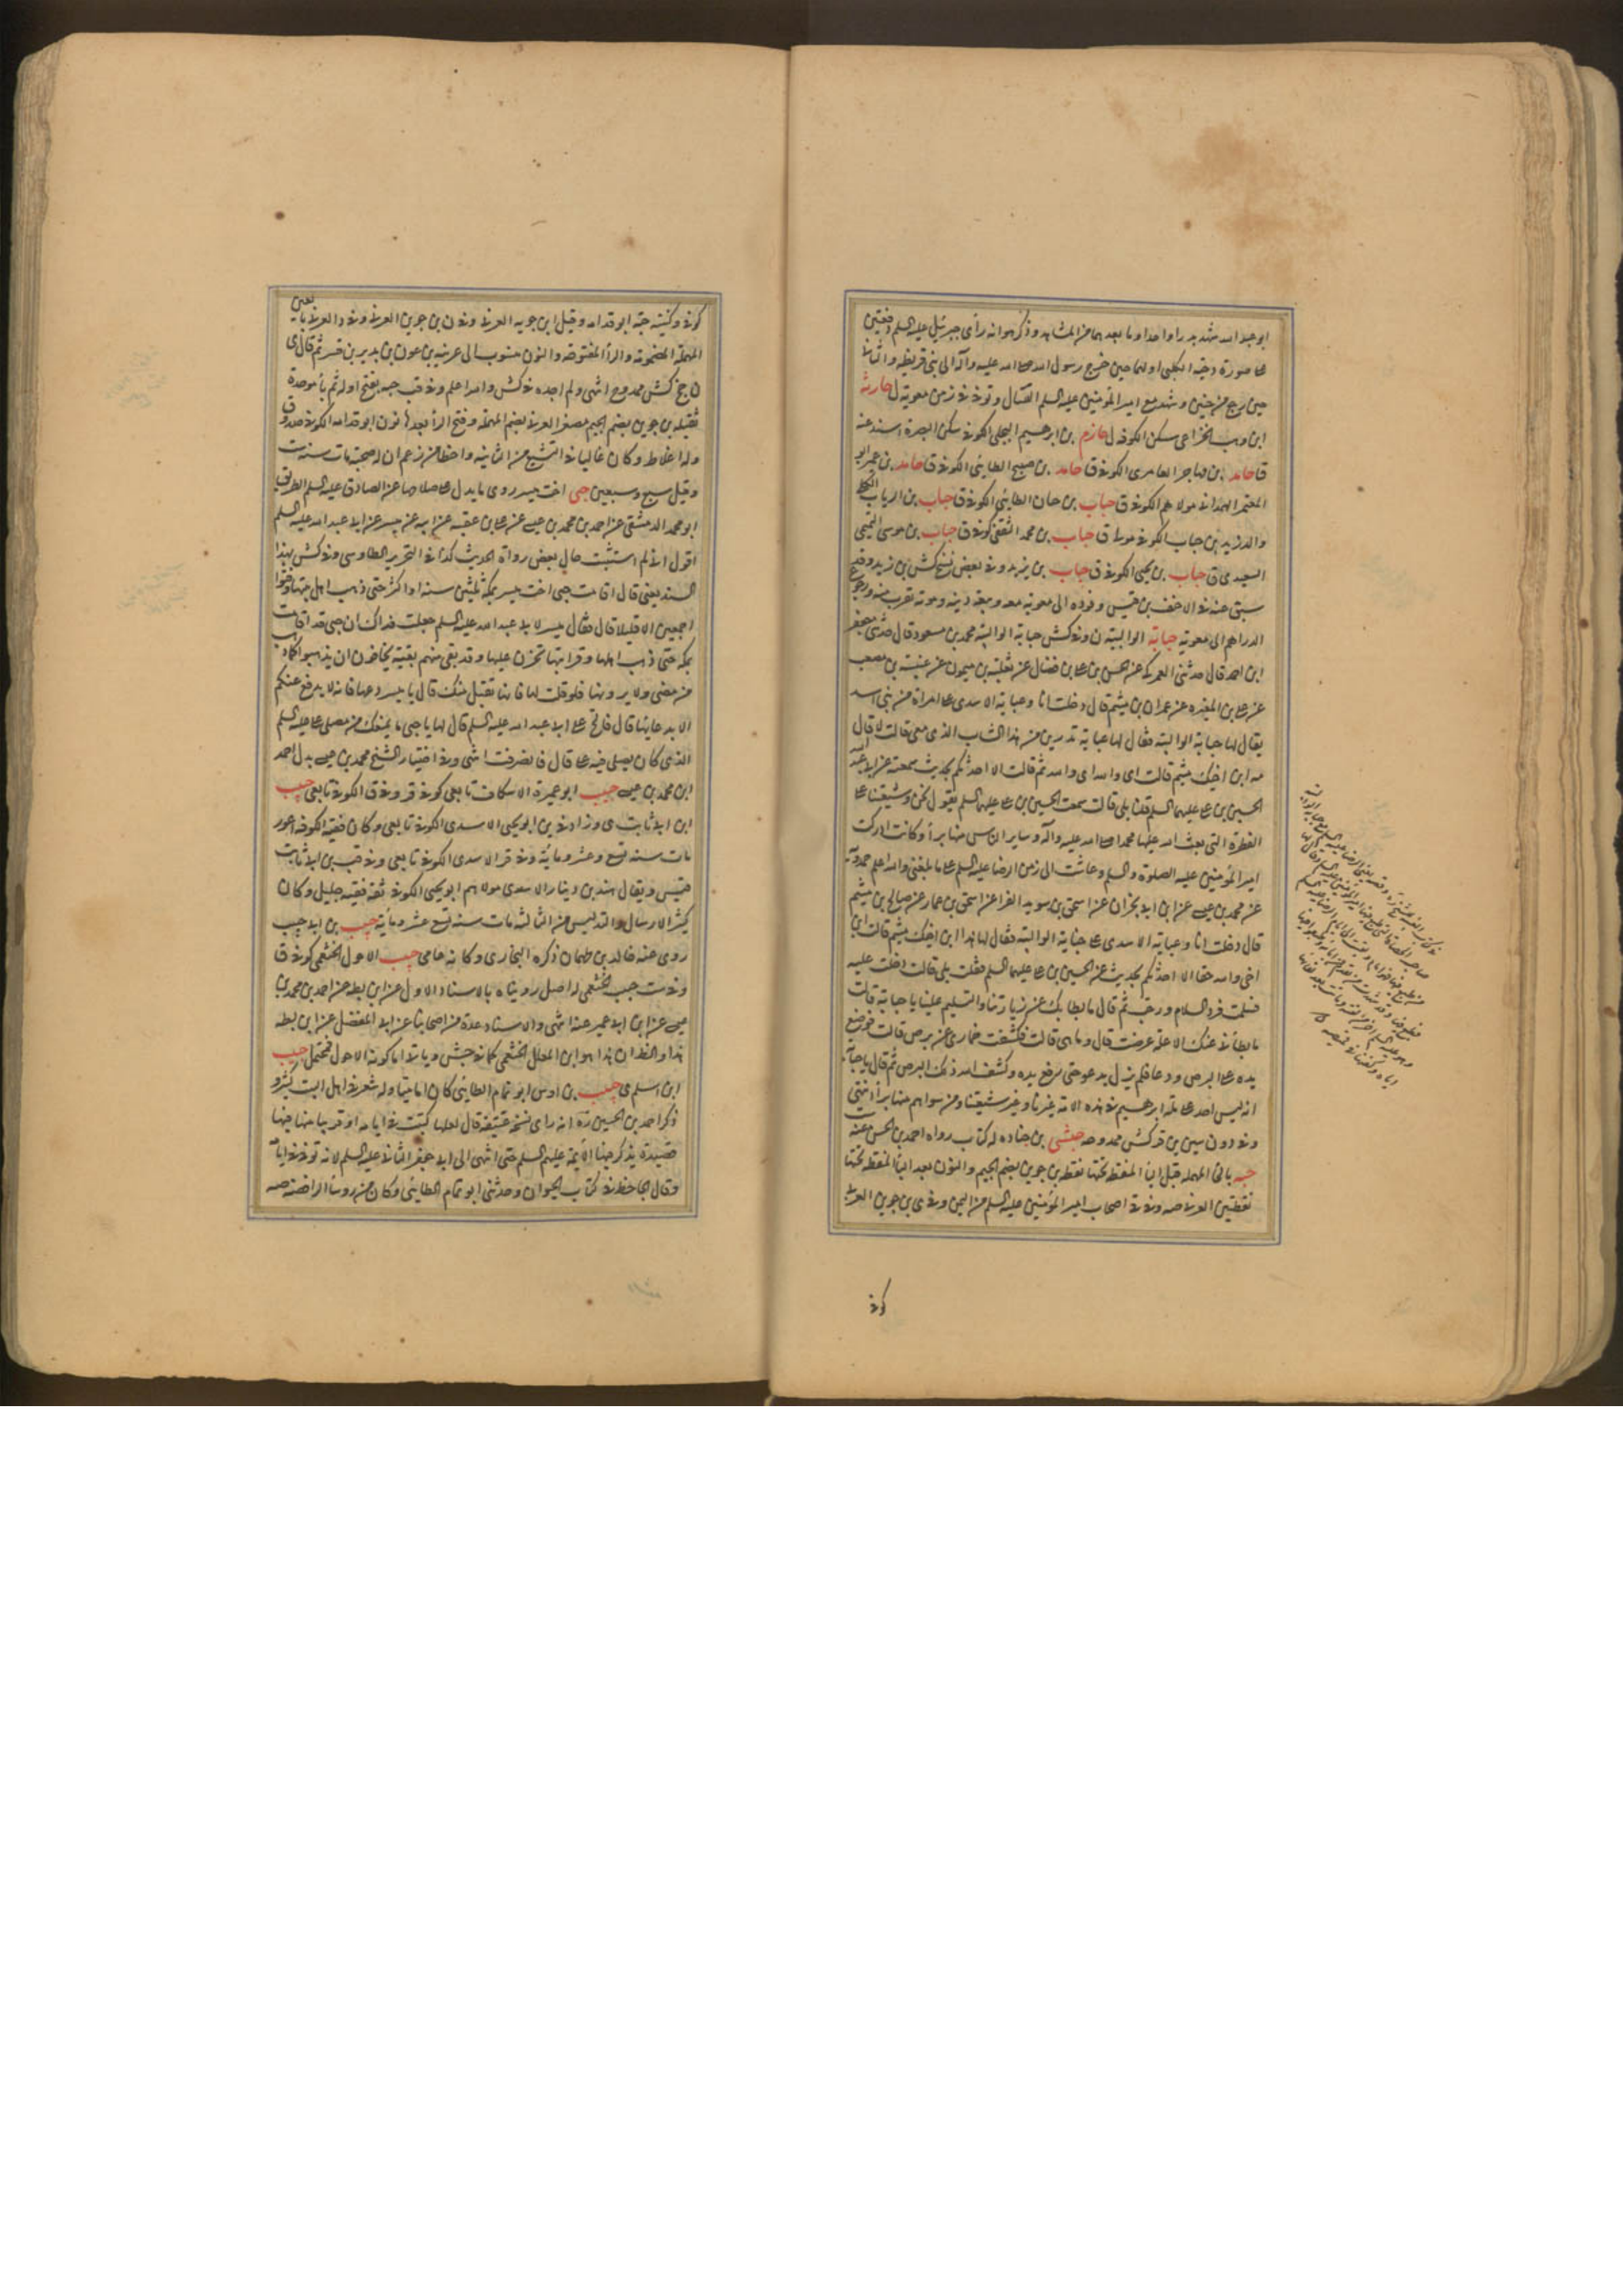 ابو عبد الله شهد بدرا واحدا وما بعدهما من المشاهد وذكر هو انه رأى جبرئيل عليه السلم دفعتين
على صورة دحية الكلبى اولهما حين خرج رسول الله صلى الله عليه وآله الى بنى قريظه والثانى
حين رجع من حنين وشهد مع امير المؤمنين عليه السلم القتال وتوفى فى زمن معوية ل حارثه
ابن وهب الخزاعى سكن الكوفه ل حازم بن ابرهيم البجلى الكوفى سكن البصرة اسند عنه
ق حامد بن مهاجر العامرى الكوفى ق حامد بن صبيح الطائى الكوفى ق حامد بن عمير ابو
المعتمر الهمدانى مولاهم الكوفى ق حباب بن حان الطائى الكوفى ق حباب بن الرياب الكلبى
والد زيد بن حباب الكوفى مولى ق حباب بن محمد الثقفى كوفى ق حباب بن موسى التميمى
السعيدى ق حباب بن يحيى الكوفى ق حباب بن يزيد وفى بعض نسخ كش بن زيد وقد
سبق عنه فى الاحنف بن قيس وفوده الى معويه معه وبيعه دينه وموته بقرب منه ورجوع
الدراهم الى معويه حبابة الوالبية ن وفى كش حبابة الوالبية محمد بن مسعود قال حدثنى جعفر
ابن احمد قال حدثنى العمركى عن الحسن بن على بن فضال عن ثعلبة بن ميمون عن عنبسة بن مصعب
عن على بن المغيره عن عمران بن ميثم قال دخلت انا وعباية الاسدى على امراة من بنى اسد
يقال لها حبابة الوالبية فقال لها عباية تدرين من هذا الشاب الذى معى قالت لا قال
مه ابن اخيك ميثم قالت اى والله اى والله ثم قالت الا احدثكم بحديث سمعته عن ابى عبد الله
الحسين بن على عليهما السلم قلنا بلى قالت سمعت الحسين بن على عليهما السلم يقول نحن وشيعتنا على
الفطرة التى بعث الله عليها محمدا صلى الله عليه وآله وساير الناس منها برآء وكانت ادركت
امير المؤمنين عليه الصلوة والسلم وعاشت الى زمن الرضا عليه السلم على ما بلغنى والله اعلم حمدويه
عن محمد بن عيسى عن ابن ابى نجران عن اسحق بن سويد الفرا عن اسحق بن عمار عن صالح بن ميثم
قال دخلت انا وعباية الاسدى على حبابة الوالبية فقال لها هذا ابن اخيك ميثم قالت ابن
اخى والله حقا الا احدثكم بحديث عن الحسين بن على عليهما السلم فقلت بلى قالت دخلت عليه
فسلمت فرد السلام ورحب ثم قال ما بطا بك عن زيارتنا والتسليم علينا يا حبابة قالت
ما بطأنى عنك الا علة عرضت قال وما هى قالت فكشفت خمارى عن برص قالت فوضع
يده على البرص ودعا فلم يزل يدعو حتى رفع يده وكشف الله ذلك البرص ثم قال يا حبابة
انه ليس احد على ملة ابرهيم فى هذه الامة غيرنا وغير شيعتنا ومن سواهم منها برآء انتهى
وفى د ون سين بن ق كش ممدوحه حبشى بن جناده له كتاب رواه احمد بن الحسن عنه
حبه بالحاء المهمله قبل الباء المنقطة تحتها نقطه بن جوين بضم الجيم والنون بعد الياء المنقطه تحتها
نقطتين العرنى صه وفى ى اصحاب امير المؤمنين عليه السلم من اليمن وفى ى بن جوين العرنى
كوفى
كوفى وكنيته حبة ابو قدامه وقيل ابن جويه العرنى وفى ن بن جوين العرنى وفى د العرنى بالعين
المهملة المضمومة والراء المفتوحه والنون منسوب الى عرينه بن عون بن بدير بن قسر ثم قال ى
ن ج كش ممدوح انتهى ولم اجده فى كش والله اعلم وفى قب حبه بفتح اوله ثم باء موحدة
ثقيله بن جوين بضم الجيم مصغر العرنى بضم المهملة وفتح الراء بعدها نون ابو قدامه الكوفى صدوق
وله اغلاط وكان غاليا فى التشيع من الثانيه واخطا من زعم ان له صحبة مات سنه ست
وقيل سبع وسبعين حبى اخت ميسر روى ما يدل على صلاحها عن الصادق عليه السلم الطريق
ابو محمد الدمشقى عن احمد بن محمد بن عيسى عن على بن عقبه عن ابيه عن ميسر عن ابى عبد الله عليه السلم
اقول انى لم استثبت حال بعض رواة الحديث كذا فى التحرير الطاوسى وفى كش بهذا
السند يعنى قال اقامت حبى اخت ميسر بمكة ثلثين سنه او اكثر حتى ذهب اهل بيتها وفنوا
اجمعين الا قليلا قال فقال ميسر لابى عبد الله عليه السلم جعلت فداك ان حبى قد اقامت
بمكه حتى ذهب اهلها وقرابتها تحزن عليها وقد بقى منهم بقية يخافون ان يذهبوا كما ذهب
من مضى ولا يرونها فلو قلت لها فانها تقبل منك قال يا ميسر دعها فانه لا يدفع عنكم
الا بدعائها قال فالح على ابى عبد الله عليه السلم قال لها يا حبى ما يمنعك من مصلى على عليه السلم
الذى كان يصلى فيه على قال فانصرفت انتهى وفى اختيار الشيخ محمد بن عيسى بدل احمد
ابن محمد بن عيسى حبيب ابو عميرة الاسكاف تابعى كوفى قر وفى ق الكوفى تابعى حبيب
ابن ابى ثابت ى وزاد فى ين ابو يحيى الاسدى الكوفى تابعى وكان فقيه الكوفه اعور
مات سنه تسع وعشر ومائة وفى قر الاسدى الكوفى تابعى وفى قب بن ابى ثابت
قيس ويقال هند بن دينار الاسدى مولاهم ابو يحيى الكوفى ثقة فقيه جليل وكان
كثير الارسال والتدليس من الثالثه مات سنه تسع عشر ومائة حبيب بن ابى حبيب
روى عنه خالد بن طهمان ذكره البخارى وكانه عامى حبيب الاحول الخثعمى كوفى ق
وفى ست حبيب الخثعمى له اصل رويناه بالاسناد الاول عن ابن بطه عن احمد بن محمد بن
عيسى عن ابن ابى عمير عنه انتهى والاسناد عدة من اصحابنا عن ابى المفضل عن ابن بطه
هذا والظ ان هذا هو ابن المعلل الخثعمى كما فى جش وياتى اما كونه الاحول فمحتمل حبيب
ابن اسلم ى حبيب بن اوس ابو تمام الطائى كان اماميا وله شعر فى اهل البيت كثير و
ذكر احمد بن الحسين ره انه راى نسخه عتيقة قال لعلها كتبت فى ايامه او قريبا منها فيها
قصيدة يذكر فيها الائمة عليهم السلم حتى انتهى الى ابى جعفر الثانى عليه السلم لانه توفى فى ايامه
وقال الجاحظ فى كتاب الحيوان وحدثنى ابو تمام الطائى وكان من روساء الرافضه صه